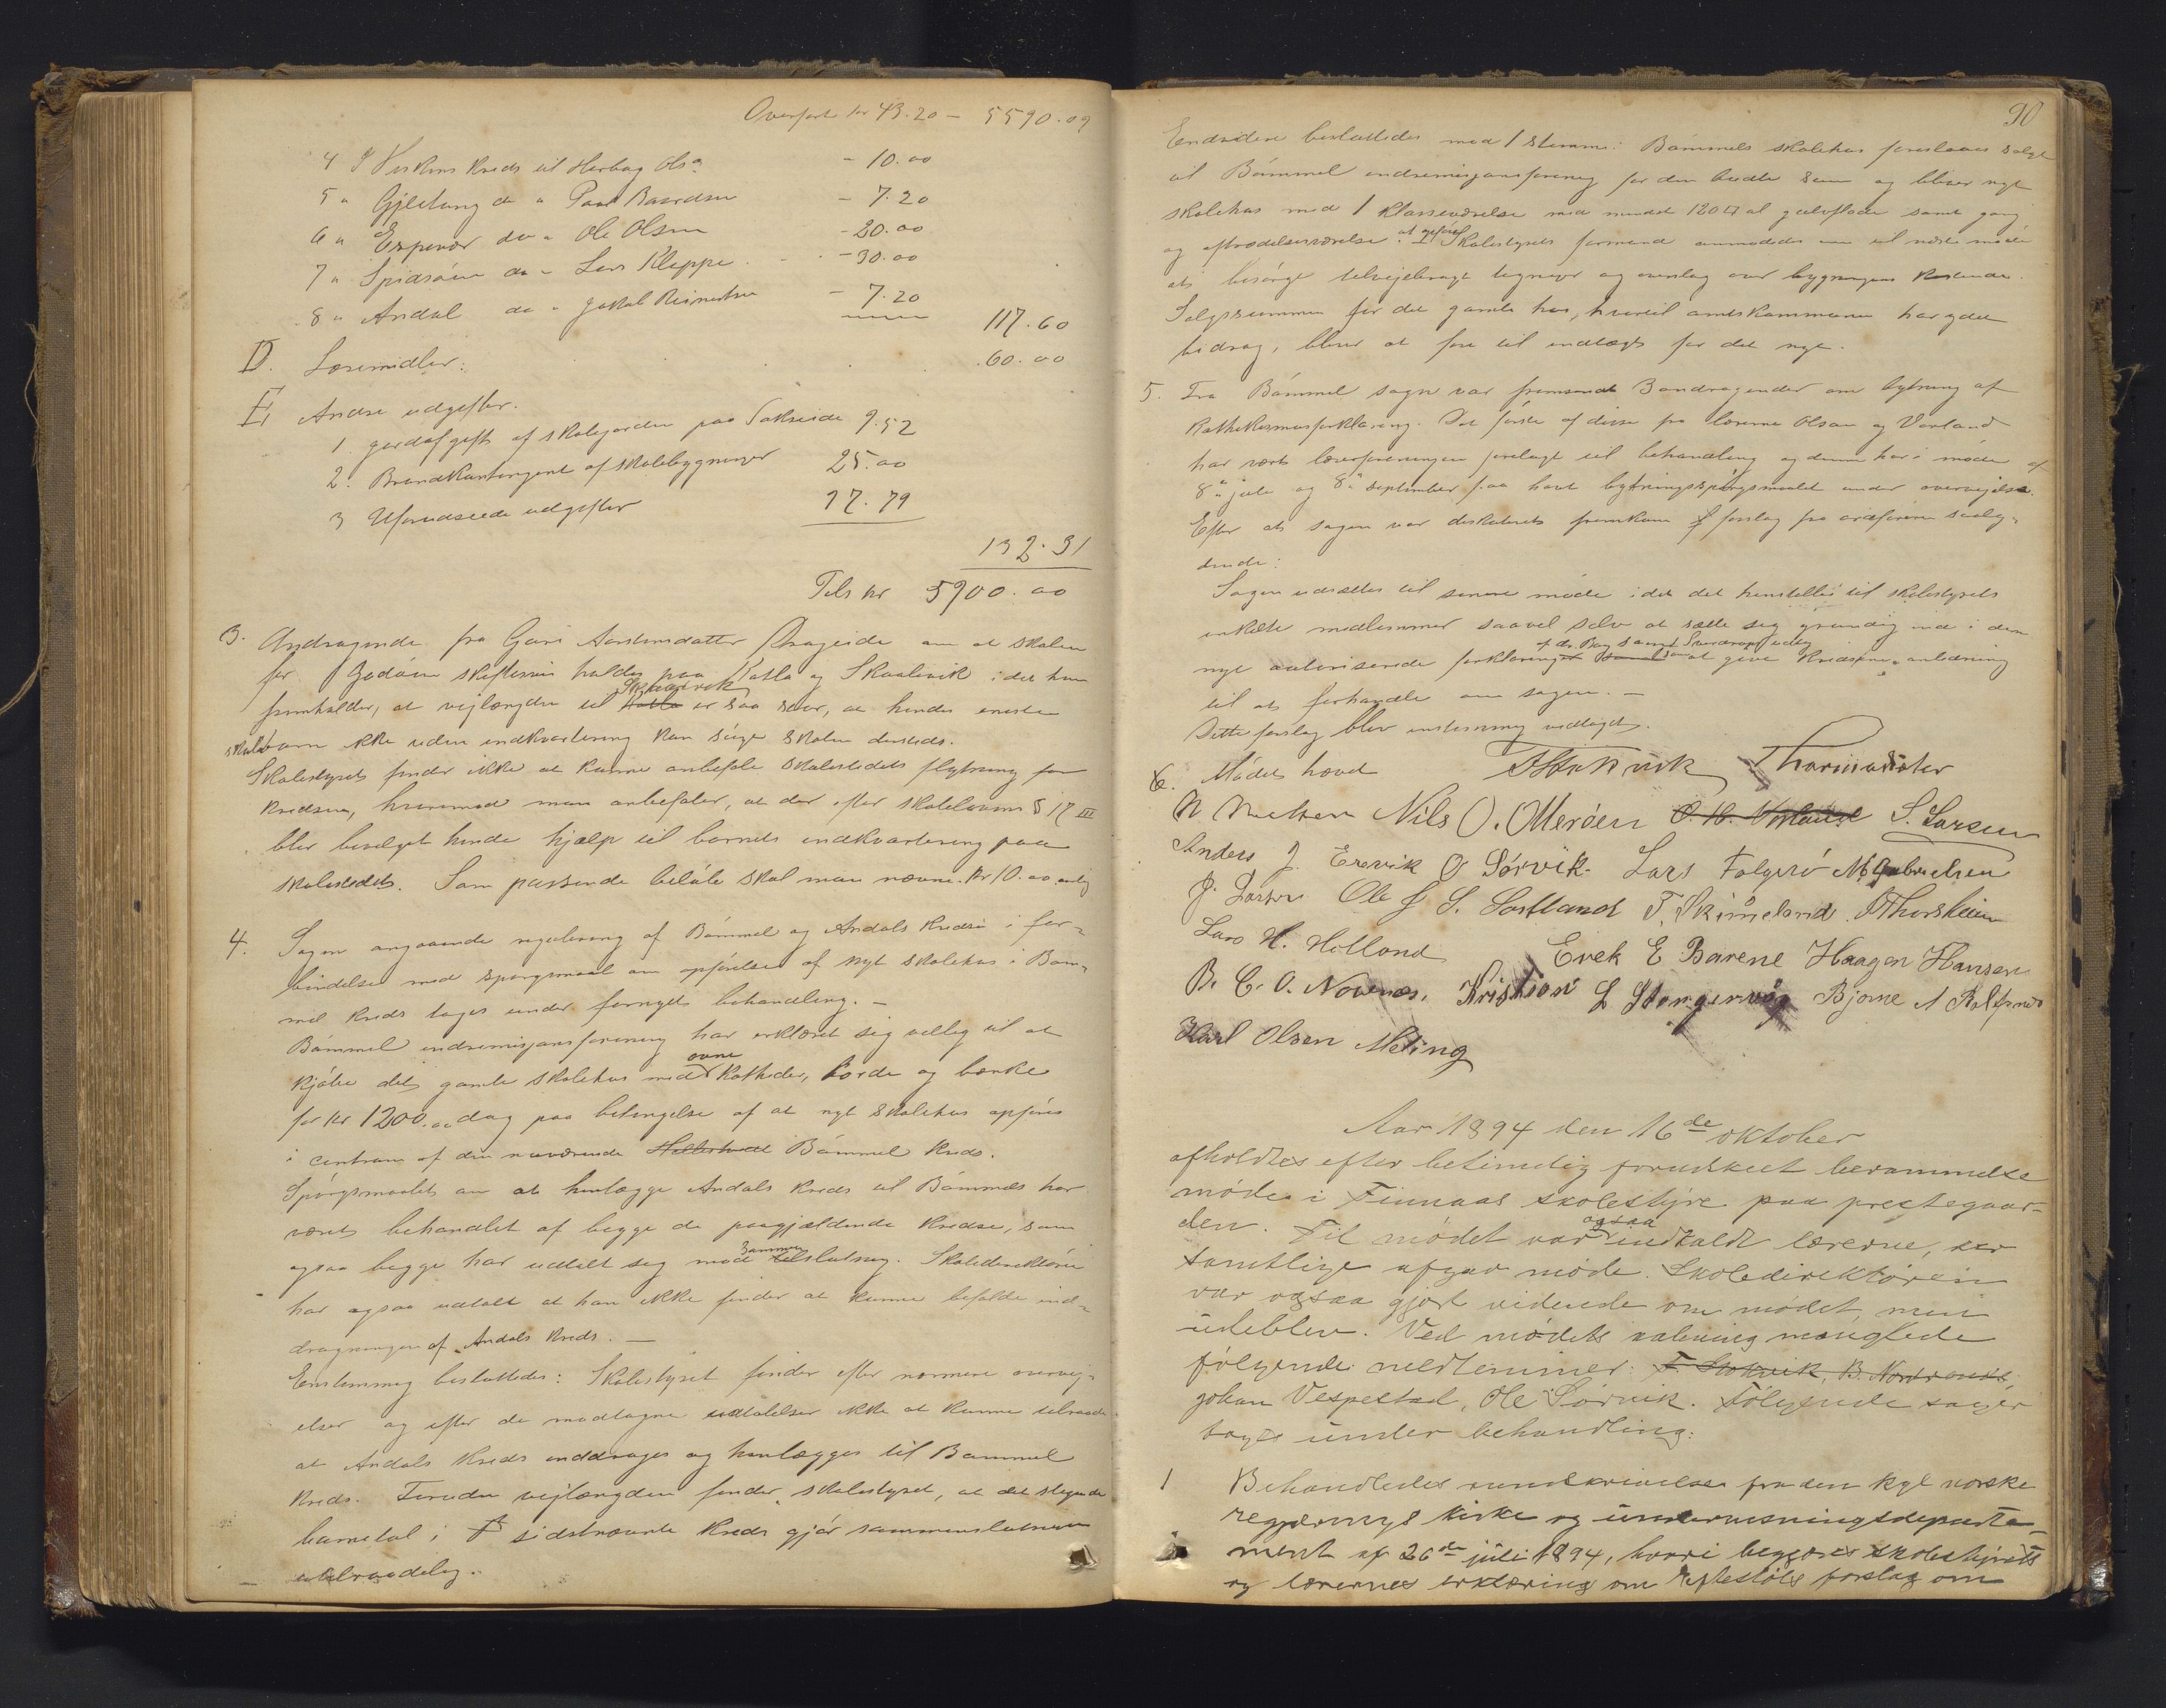 Overført kr 43.20 — 5590.09
4 I Viskens kreds til Herborg Olsen - 10.00
5 " Gjeitung do " Paul Baardsen - 7.20
6 " Espevær do " Ole Olsen - 20.00
7 " Spidsøen do " Lars Kleppe - 30.00
8 " Andal do " Jakob Reinertsen - 7.20
117.60
D. Læremidler: 60.00
E, Andre udgifter.
1 jordafgift af skolejorden paa Vaksvide 9.52
2. Brandkontingent af skolebygninger 25.00
3 Uforudseede udgifter 97.79
132.31
Tils kr 5900.00
3. Andragende fra Guri Aarstensdatter Drageide om at skolen
for Godøen skiftesvis holdes paa Katla og Skaalevik idet hun
fremholder, at vejlængden til Katla Skaalevik er saa stor, at hendes eneste
skolebarn ikke uden indkvartering kan søge skolen dersteds.
Skolestyret finder ikke at kunne anbefale skolestedets flytning for
kredsen, hvorimod man anbefaler, at der efter skolelovens § 17 III
blir bevilget hende hjælp til barnets indkvartering paa
skolestedet. Som passende beløb skal man nævne kr 10.00 aarlig
4. Sagen angaaende regulering af Bømmel og Andals kredse i for-
bindelse med spørgsmaal om opførelse af nyt skolehus i Bøm-
mel kreds toges under fornyet behandling. —
Bømmel indremisjonsforening har erklæret sig villig til at
kjøbe det gamle skolehus med ovne Katheder, borde og bænke
for kr 1200.00 dog paa betingelse af at nyt skolehus opføres
i centrum af den nuværende Bømmel kreds.
Spørgsmaalet om at henlægge Andals kreds til Bømmels har
været behandlet af begge de paagjældende kredse, som
ogsaa begge har udtalt sig mod sammenslutning. Skoledirektøren
har ogsaa udtalt at han ikke finder at kunne befalde ind-
dragningen af Andals kreds. —
Enstemmig besluttedes: Skolestyret finder efter nærmere overvej-
elser og efter de modtagne udtalelser ikke at kunne tilraade
at Andals kreds inddrages og henlægges til Bømmel
kreds. Foruden vejlængden finder skolestyret, at det stigende
barnetal i sidstnævnte kreds gjør sammenslutningen
utilraadelig.
90
Endvidere besluttedes med 1 stemme: Bømmels skolehus foreslaaes solgt
til Bømmel indremisjonsforening for den budte sum og bliver nyt
skolehus med 1 klasseværelse med mindst 120 □ al gulvflade samt gang
og aftrædelsesværelse at opføre. Skolestyrets formand anmodedes om til næste møde
at besørge tilvejebragt tegninger og overslag over bygningens kostende.
Salgssummen for det gamle hus, hvortil amtskommunen har ydet
bidrag, bliver at føre til indtægt for det nye.
5. Fra Bømmel sogn var fremsendt 3 andragender om bytning af
Kathekismusforklaring. Det første af disse fra lærerne Olsen og Vorland
har været lærerforeningen forelagt til behandling og denne har i møder af
8de jule og 8de september f.aa. havt bytningsspørgsmaalet under overvejelse.
Efter at sagen var diskuteret fremkom forslag fra ordføreren saaly-
dende:
Sagen udsættes til senere møde idet det henstilles til skolestyrets
enkelte medlemmer saavel selv at sætte sig grundig ind i den
nye autoriserede forklaring som at give kredsene anledning
til at forhandle om sagen. —
Dette forslag blev enstemmig vedtaget.
6. Mødet hævet F Stokvik Thorine Vister
N Nielsen Nils O. Mæröen O. H. Vorland S. Larsen
Anders J. Erevik O Sørvik. Lars Folgerö M Gabrielsen
J. Larsen Ole J S. Sortland T. Skimeland. J Thorsheim
Lars H. Holland Erek E Barene Haagen Hansen
B. C. O. Novenæs, Kristian L Stangervåg Bjorne A Rolfsnes
Karl Olsen Meling
Aar 1894 den 16de oktober
afholdtes efter betimelig forudskeet berammelse
møde i Finnaas skolestyre paa prestegaar-
den. Til mødet var ogsaa indkaldt lærerne, der
samtlige afgav møde. Skoledirektøren
var ogsaa gjort vidende om mødet, men
udeblev. Ved mødets aabning manglede
følgende medlemmer: F. Stokvik, B. Novenæs,
Johan Vespestad, Ole Sørvik. Følgende sager
toges under behandling:
1 Behandledes rundskrivelse fra den kgl norske
regjerings kirke og undervisningsdeparte-
ment af 26de juli 1894, hvori begjæres skolestyrets
og lærernes erklæring om Reftestøls forslag om